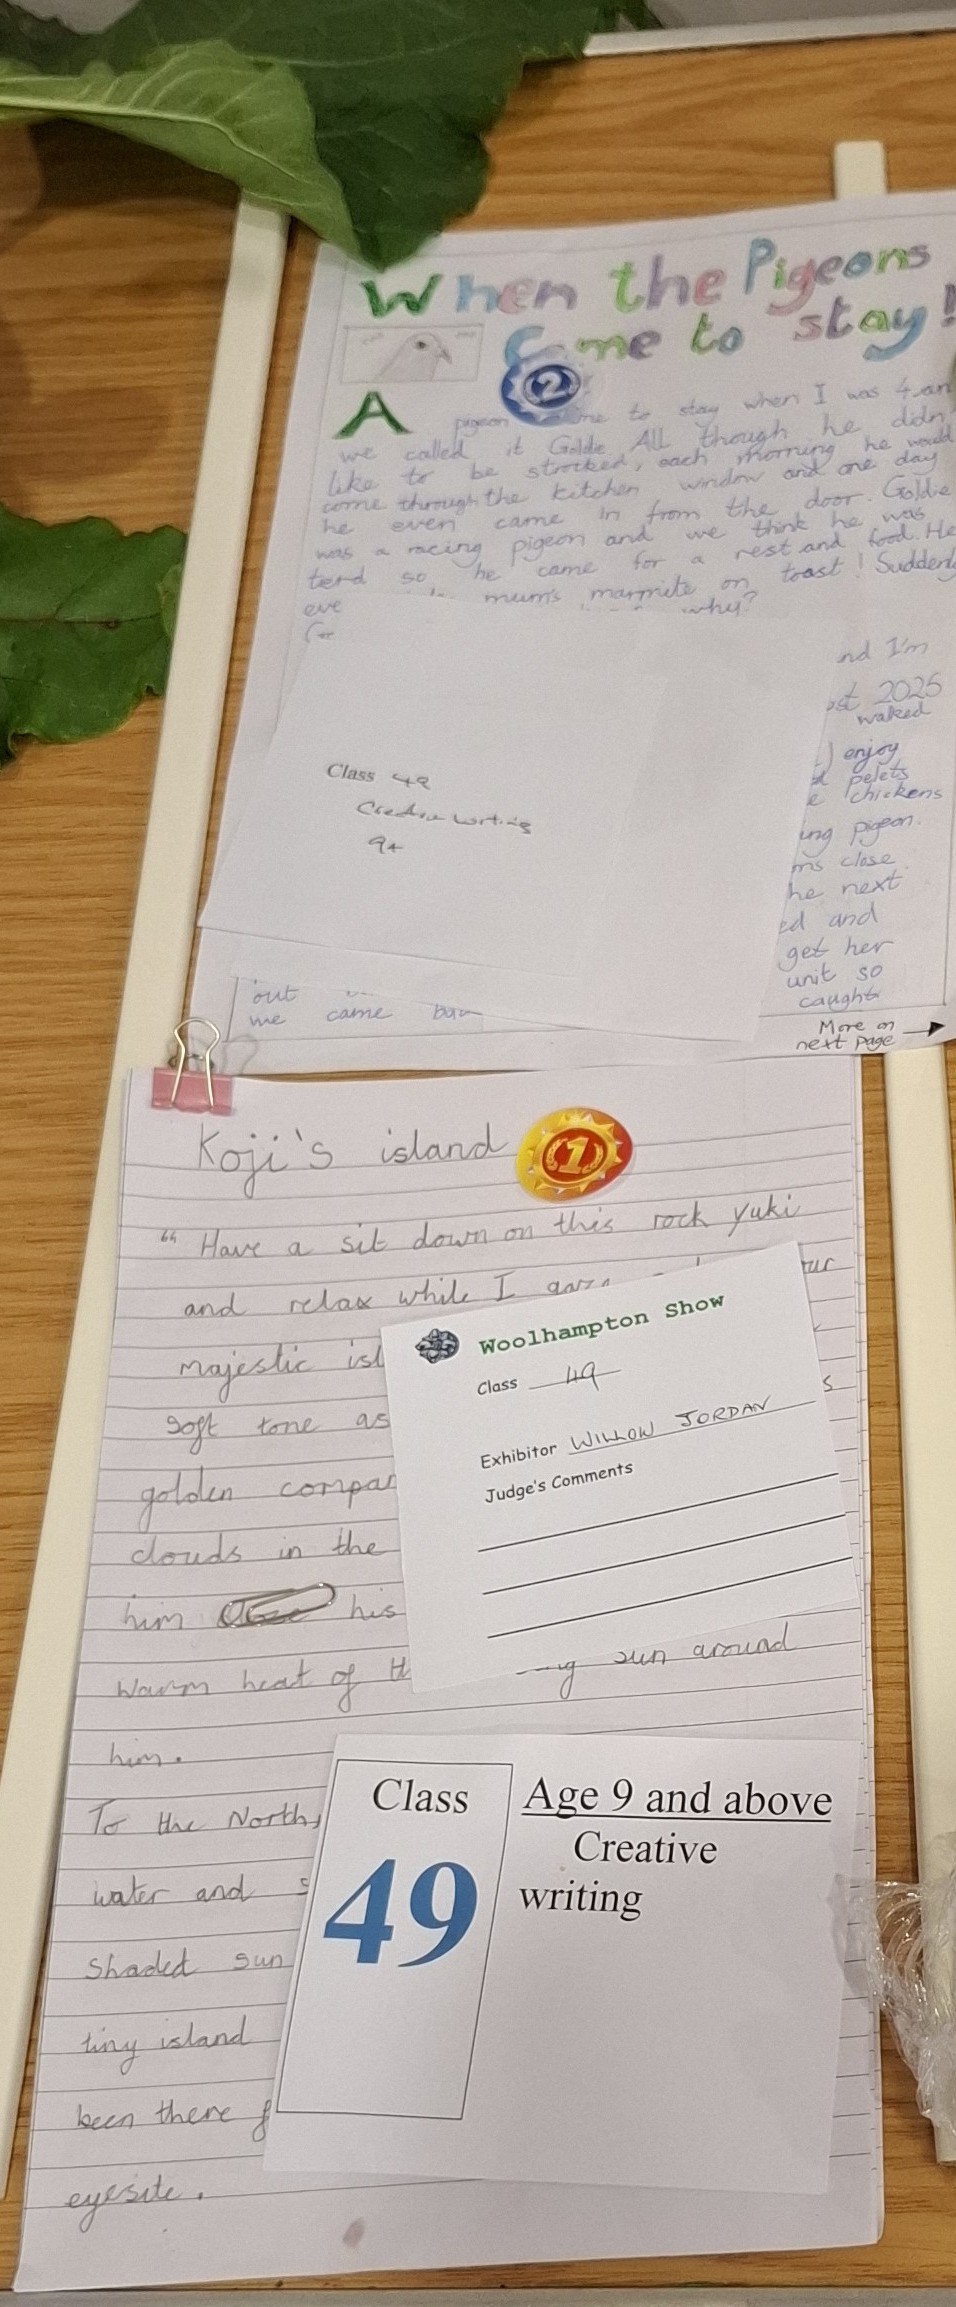 When the Pigeons
Came to stay!
2
A pigeon to stay when I was 4 an
we called it Goldie. All though he didn
like to be strocked, each morning he would
come through the kitchen window and one day
he even came in from the door. Goldie
was a racing pigeon and we think he was
terd so he came for a rest and food. He
mum's marmite on toast! Suddenly
why?
nd I'm
2025
walked
enjoy
pelets
chickens
ing pigeon.
ms close
he next
ed and
get her
unit so
caught
out
me came
More on
next page
Class 49
Creative writing
9+
Koji's island
1
"Have a sit down on this rock yuki
and relax while I
majestic isl
soft tone as
golden compan
clouds in the
him his
warm heat of sun around
him.
To the North,
water and s
shaded sun
tiny island
been there f
eyesite.
Woolhampton Show
Class 49
Exhibitor WILLOW JORDAN
Judge's Comments
Class
49
Age 9 and above
Creative
writing